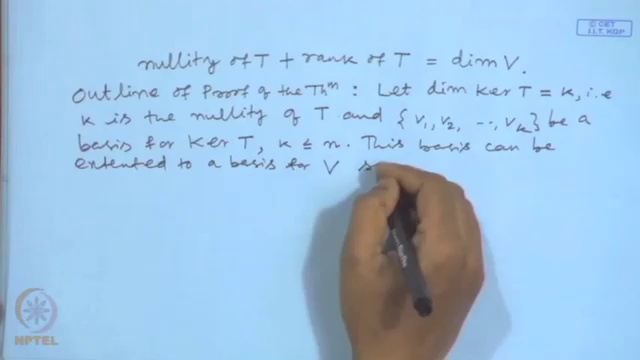 © CET
I.I.T. KGP
nullity of T + rank of T = dim V.
Outline of Proof of the Thm : Let dim Ker T = k, i.e
k is the nullity of T and {v1, v2, ..., vk} be a
basis for Ker T, k ≤ n. This basis can be
extented to a basis for V s
NPTEL